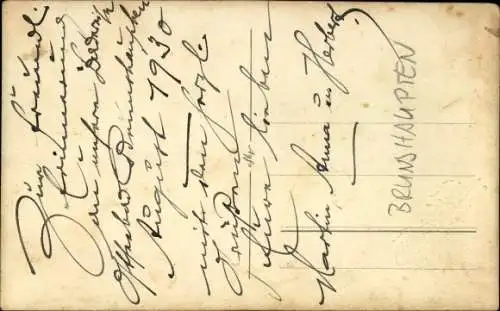 Zur freundl.
Erinnerung
an unsern
Ostseebad Brunshaupten
August 1930
mit den herzl.
Grüßen
Martin, Anna u. Herbert
BRUNSHAUPTEN